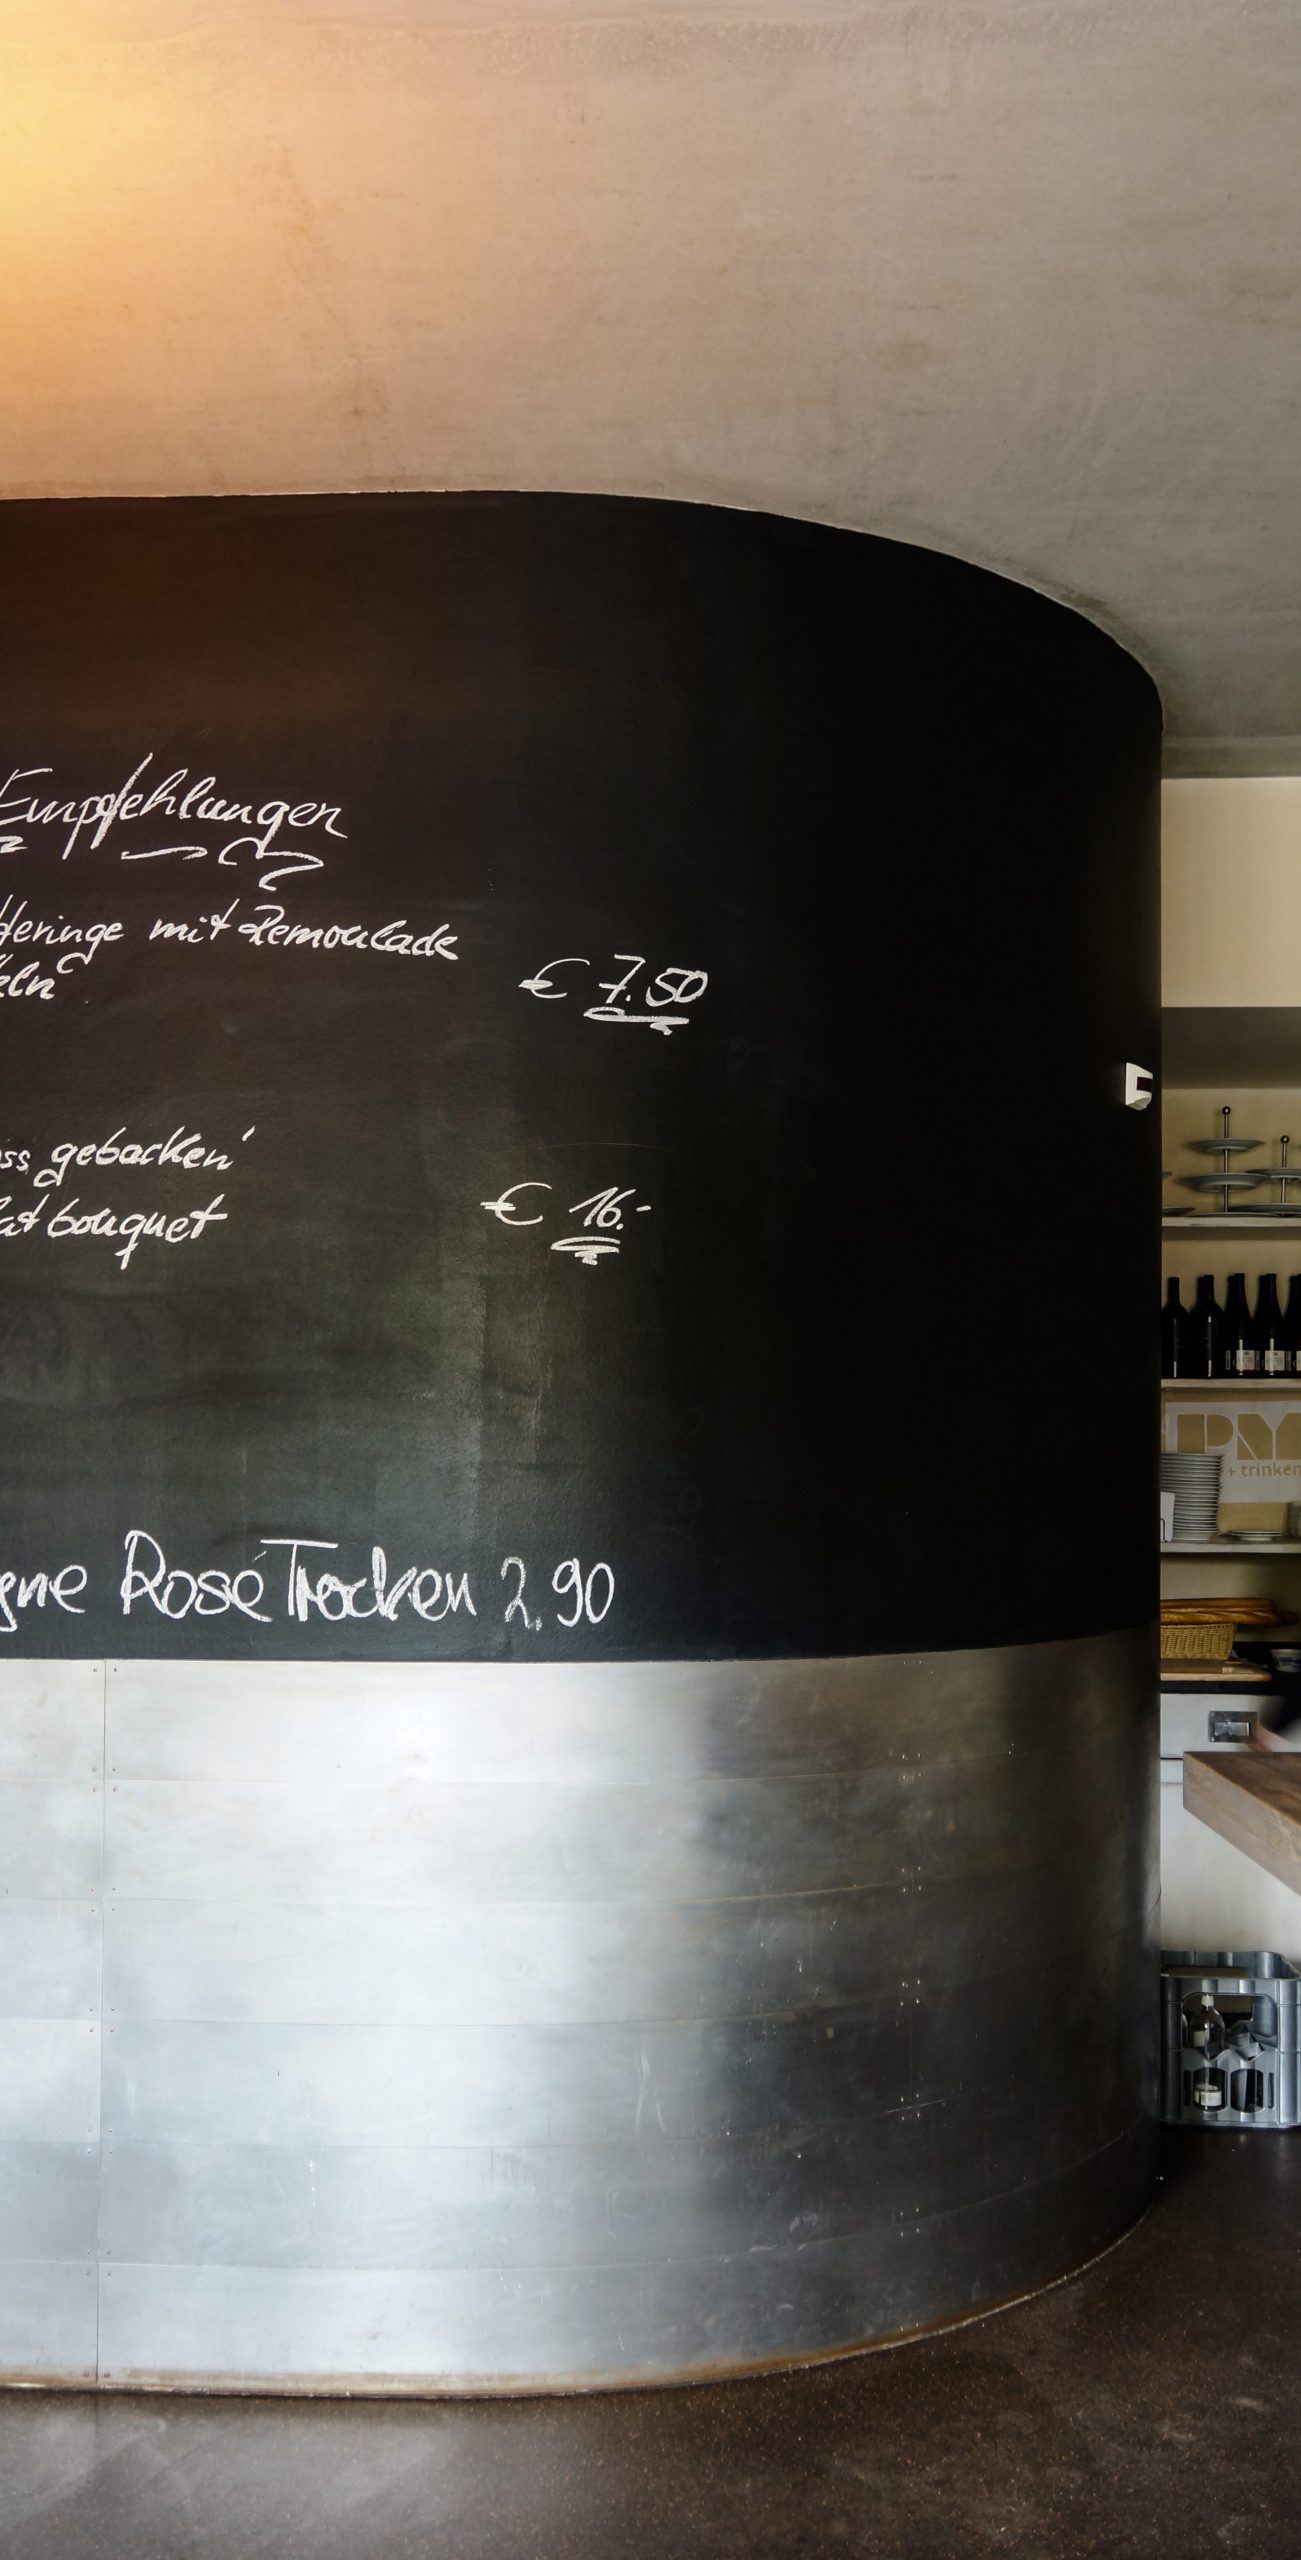 Empfehlungen
Heringe mit Remoulade
eln
€ 7.50
ss gebacken
at bouquet
€ 16.-
gne Rosé Trocken 2,90
+ trinken